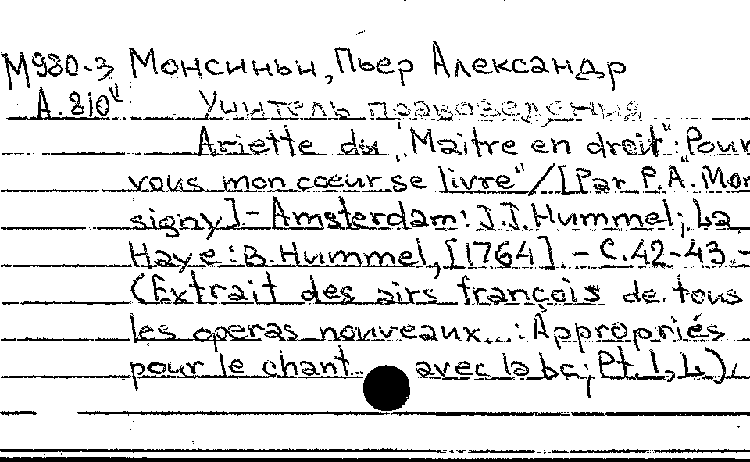 М980-3 Монсиньи, Пьер Александр
А.810ᵛ Учитель правоведения
Ariette du "Maitre en droit": "Pour
vous mon cœur se livre" / [Par P.A. Mon
signy] - Amsterdam: J.J. Hummel; La
Haye: B. Hummel, [1764]. - С.42-43. -
(Extrait des airs français de tous
les operas nouveaux...: Appropriés
pour le chant avec la bc; Pt. I, L).